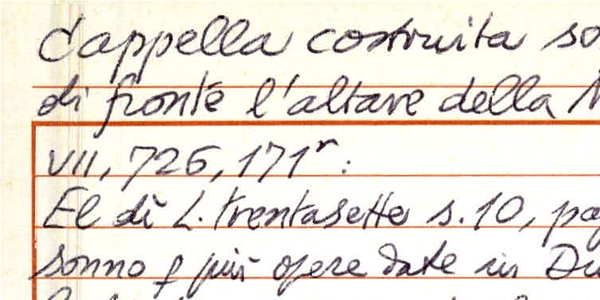 Cappella costruita so
di fronte l'altare della
VII, 726, 171r:
El dì L. trentasette s. 10, pa
sonno p più opere date in Du